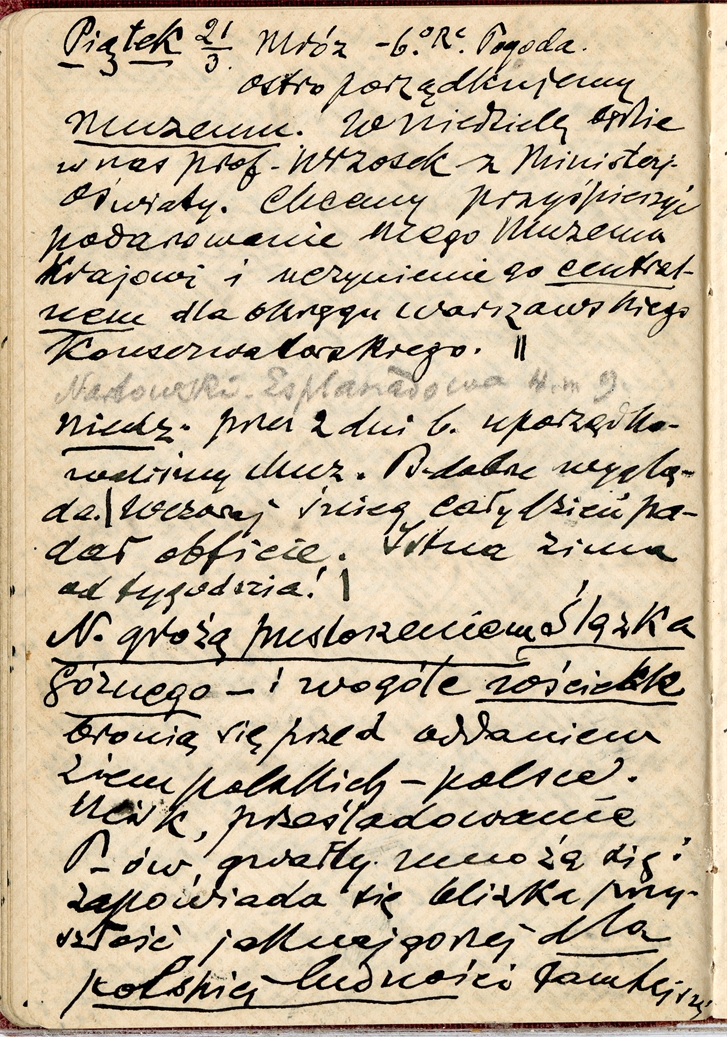 Piątek 21/3. Mróz -6.° R^e. Pogoda.
ostro porządkujemy
Muzeum. W niedzielę będzie
u nas prof. Wrzosek z Minister.
Oświaty. Chcemy przyśpieszyć
podarowanie mego Muzeum
Krajowi i uczynienie go central-
nem dla okręgu warszawskiego
Konserwatorskiego. ||
Esplanadowa 4. m 9.
niedz. przez 2 dni b. uporządko-
waliśmy Muz. B. dobrze wyglą-
da. | Wczoraj śnieg cały dzień pa-
dał obficie. Istna zima
od tygodnia! |
N. grożą pustoszeniem Ślązka
górnego – i wogóle wściekle
bronią się przed oddaniem
ziem polskich – polsce.
Ucisk, prześladowanie
P-ów, gwałty mnożą się i
zapowiada się blizka przy-
szłość jaknajgorzej dla
polskiej ludności tamtejszej